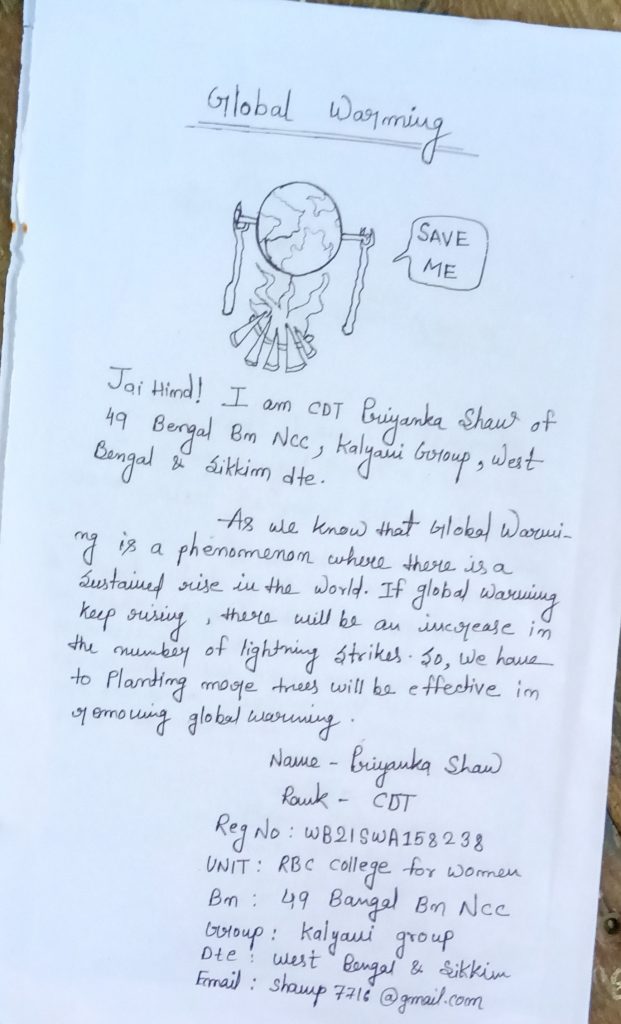 Global Warming
SAVE
ME
Jai Hind! I am CDT Priyanka Shaw of
49 Bengal Bn Ncc, Kalyani Group, West
Bengal & Sikkim dte.
As we know that Global Warmi-
ng is a phenomenon where there is a
Sustained rise in the World. If global warming
Keep rising, there will be an increase in
the number of lightning strikes. So, we have
to Planting more trees will be effective in
removing global warming.
Name - Priyanka Shaw
Rank - CDT
Reg No : WB21SWA158238
UNIT : RBC College for Women
Bn : 49 Bangal Bn Ncc
Group : Kalyani group
Dte : West Bengal & Sikkim
Email : shawp7716@gmail.com